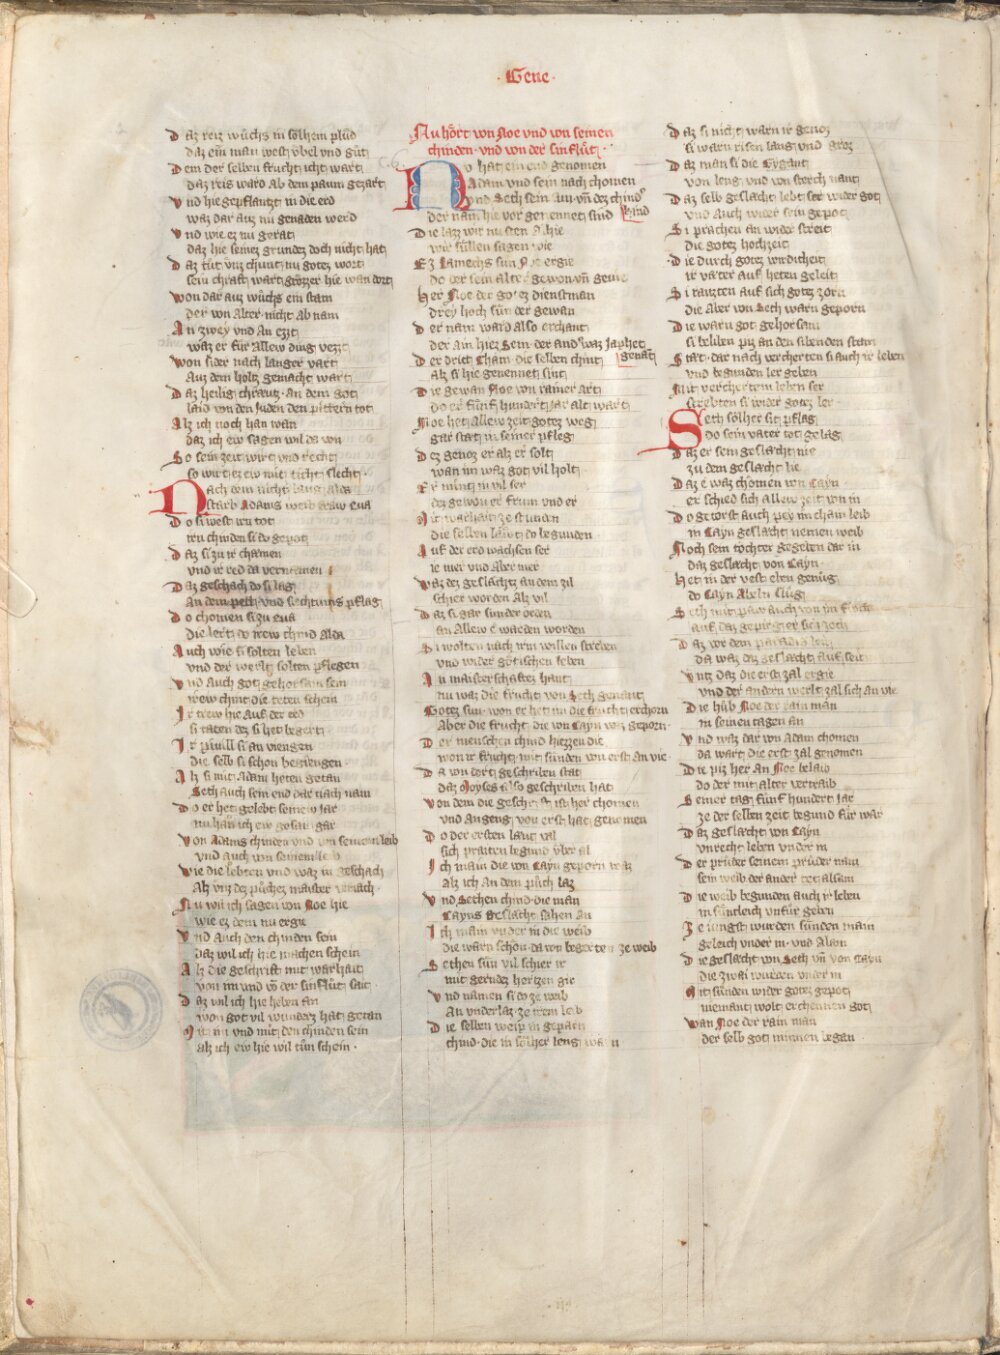 · Gene ·
Daz reiz wuͤchs in soͤlhem pluͤd
daz ein man west vbel vnd guͤt
Dem der selben frucht icht wart
daz reis ward ab dem paum gezart
Vnd hie gepflantzt in die erd
waz dar auz nu genaden werd
Vnd wie ez nu gerat
daz hie seinez grundez doch nicht hat
Daz tuͤt vnz chunt nu gotez wort
sein chraft wart groͤzzer hie wan dort
Von dar auz wuͤchs ein stam
der von alter nicht ab nam
An zwey vnd an ezzt
waz er fuͤr allew ding vezzt
Von sider nach langer vart
Auz dem holtz gemacht wart
Daz heilig chraeutz an dem got
laid von den Juden den pittern tot
Alz ich noch han wan
daz ich ew sagen wil da von
So sein zeit wirt vnd recht
so wirt ez ew mit ticht slecht ·
Nach dem nicht lang alda
starb Adams weib fraw Eua
Do si west irn tot
irn chinden si do gepot
Daz si zu ir chamen
vnd ir red da vernamen
Daz geschach do si lag
An dem pett vnd siechtums pflag
Do chomen si zu eua
die lert do irew chind alda
Auch wie si solten leben
vnd der werlt solten pflegen
Vnd auch got gehorsam sein
irew chint die teten schein
Ir trew hie auf der erd
si taten dez si het begert
Ir piuill si an viengen
die selb si schon begiengen ·
Alz si mit Adam heten getan
Seth auch sein end dar nach nam
Do er het gelebt seinew iar
nu han ich ew gesait gar
Von Adams chinden vnd von seinem leib
vnd auch von seinem weib
Wie die lebten vnd waz in geschach
Alz vnz dez puͤchez maister veriach ·
Nu wil ich sagen von Noe hie
wie ez dem nu ergie
Vnd auch den chinden sein
daz wil ich hie machen schein
Alz die geschrift mit warhait
von im vnd vō der sinfluͤt sait ·
Daz wil ich hie heben an
von got vil wunderz hat getan
Mit im vnd mit den chinden sein
alz ich ew hie wil tuͤn schein ·
Nu hoͤrt von Noe vnd von seinen
chinden · vnd von der sinfluͤt ·
No hat ein end genomen
Adam vnd sein nach chomen
vnd Seth sein sun vn̄ dez chind
der nam hie vor genennet sind
Die lazz wir nu sten hie
wir suͤllen sagen wie
Ez Lamechs sun Noe ergie
do der sein alter gewon vn̄ gevie
Her Noe der gotez dienstman
drey hoch suͤn der gewan
Der nam ward also erchant
der ain hiez Sem · der and waz Japhet
Der drit Cham · die selben chint genant
alz si hie genennet sint
Die gewan Noe von rainer art
do er fuͤnf hundert iar alt wart
Noe het allew zeit gotez weg
gar stat in seiner pfleg
Dez genoz er alz er solt
wan im waz got vil holt
Er mint in vil ser
dez gewon er frum vnd er
die selben laͤwt do begunden
Auf der erd wachsen ser
ie mer vnd aber mer
Waz dez geslachtz an dem zil
schier worden alz vil
Daz si gar sunder orden
an allew e waeden worden
Si wolten nach irm willen streben
vnd wider goͤtischen leben
An maisterschaftez hant
nu waz die frucht von Seth genant
Gotez sun · von er het im die frucht erchorn
Aber die frucht die von Cayn waz geporn ·
Der menschen chind hiezzen die
von ir frucht mit sunden von erst an vie ·
Da von dort geschriben stat
daz Moyses also geschriben hat
Von dem die geschrift ist her chomen
vnd angeng von erst hat genomen
Do der ersten laͤut zal
sich praiten begund vͤber al
Ich main die von Cayn geporn waz
alz ich an dem puͤch laz
Vnd Sethen chind die man
Cayns geslacht sahen an
Ich main vnder in die weib
die warn schoͤn · da von begerten ze weib
Sethen suͤn vil schier ir
mit gerndez hertzen gir
Vnd namen si do ze weib
An vnderlaz ze irem leib
Die selben weip in geparn
chind · die in soͤlher leng warn
Daz si nicht warn ir genoz
si warn risen lang vnd groz
Daz man si die Gygant
von leng vnd von sterch nant
Daz selb geslacht lebt ser wider got
vnd auch wider sein gepot
Si prachen an wider streit
die gotez hochzeit
Die durch gotez wirdicheit
ir vater auf heten geleit
Si raitzten auf sich gotez zorn
die aber von Seth warn geporn
Die warn got gehorsam
si beliben piz an den sibenden stam
Staͤt · dar nach vercherten si auch ir leben
vnd begunden ler geben
Mit verchertem leben ser
strebten si wider gotez ler ·
Seth soͤlher sit pflag
Do sein vater tot gelag
Daz er sein geslacht nie
zu dem geslacht lie
Daz e waz chomen von Cayn
er schied sich allew zeit von in
Do getorst auch pey im chain leib
in Cayn geslacht nemen weib
Noch sein toͤchter gegeben dar in
daz geslacht von Cayn ·
Het in der vest eben genuͤg
do Cayn Abeln sluͤg
auf daz gepirg er sich zoch
Daz vor dem paradis leit
da waz daz geslacht auf seit
Vntz daz die erst zal ergie
vnd der andern werlt zal sich an vie
Die huͤb Noe der rain man
in seinen tagen an
Vnd waz dar von Adam chomen
da wart die erst zal genomen
Die piz her an Noe belaib
do der mit alter vertraib
Seiner tag fuͤnf hundert iar
ze der selben zeit begund fuͤr war
Daz geslacht von Cayn
vnrecht leben vnder in
Der pruͤder seinem pruͤder nam
sein weib der ander tet alsam
Die weib begunden auch ir leben
in suͤntleich vnfuͤr geben
Ie iungst wurden suͤnden main
geleich vnder in · vnd allain
Die geslacht von Seth vn̄ von Cayn
die zwai wurden vnder in
Mit suͤnden wider gotez gepot
niemant wolt erchennen got
Wan Noe der rain man
der selb got minnen began ·